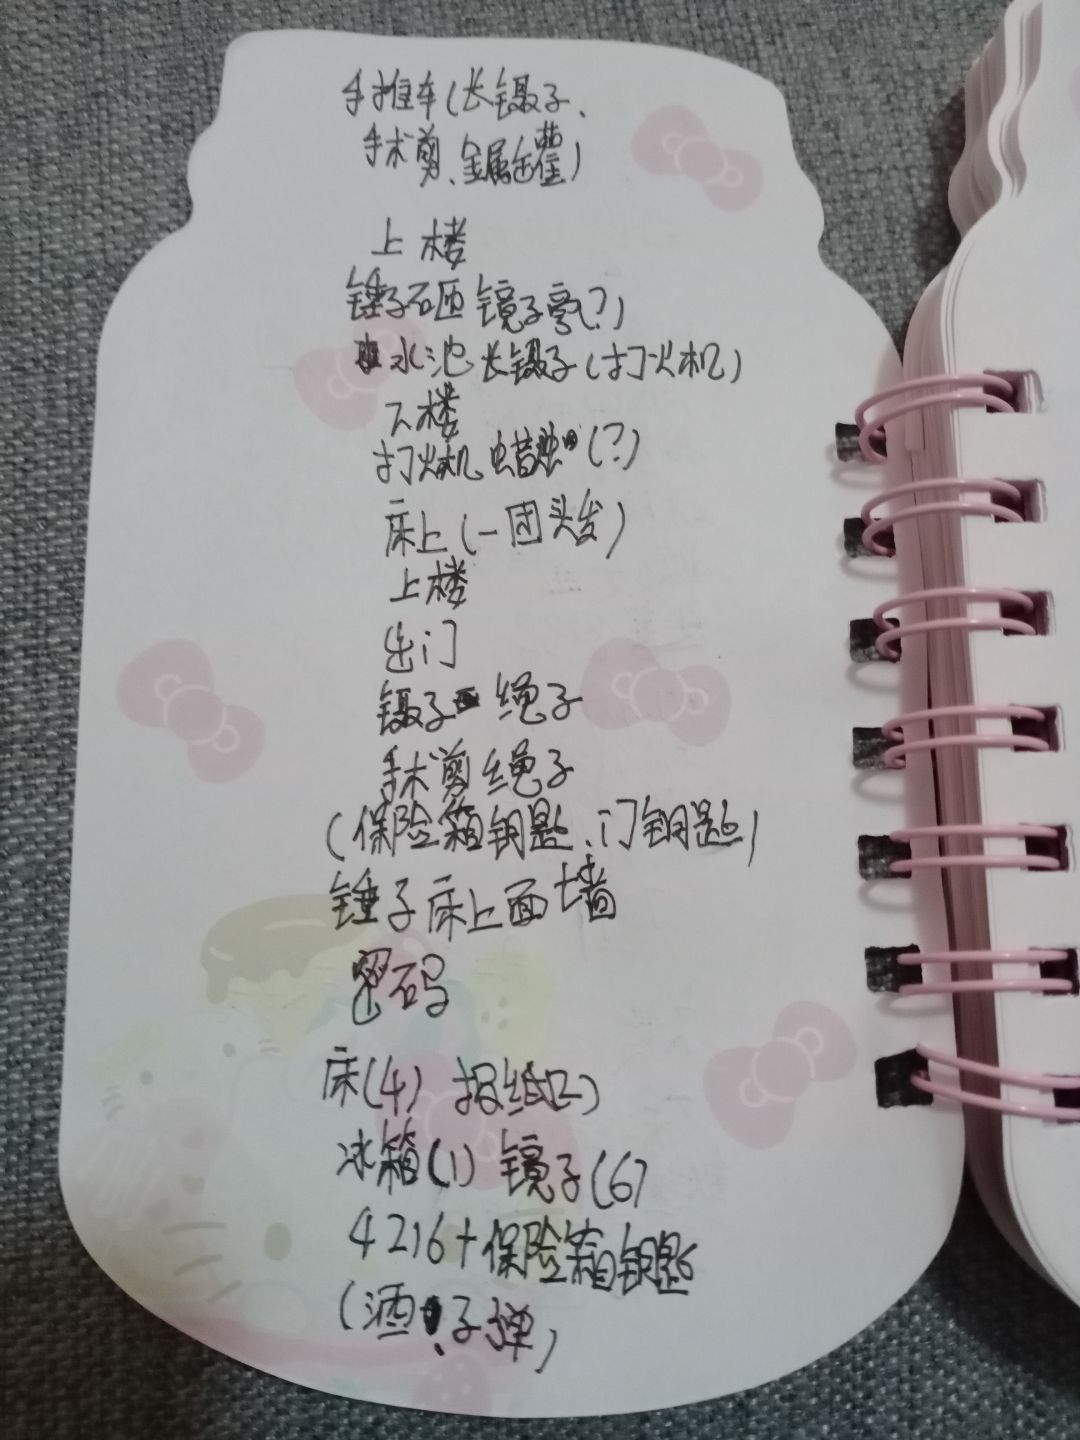 手推车(长镊子、
手术剪、金属罐)
上楼
锤子砸镜子(?)
水池长镊子(打火机)
下楼
打火机蜡烛(?)
床上(一团头发)
上楼
出门
镊子 绳子
手术剪绳子
(保险箱钥匙、门钥匙)
锤子床上面墙
密码
床(4) 报纸(2)
冰箱(1) 镜子(6)
4216+保险箱钥匙
(酒、子弹)